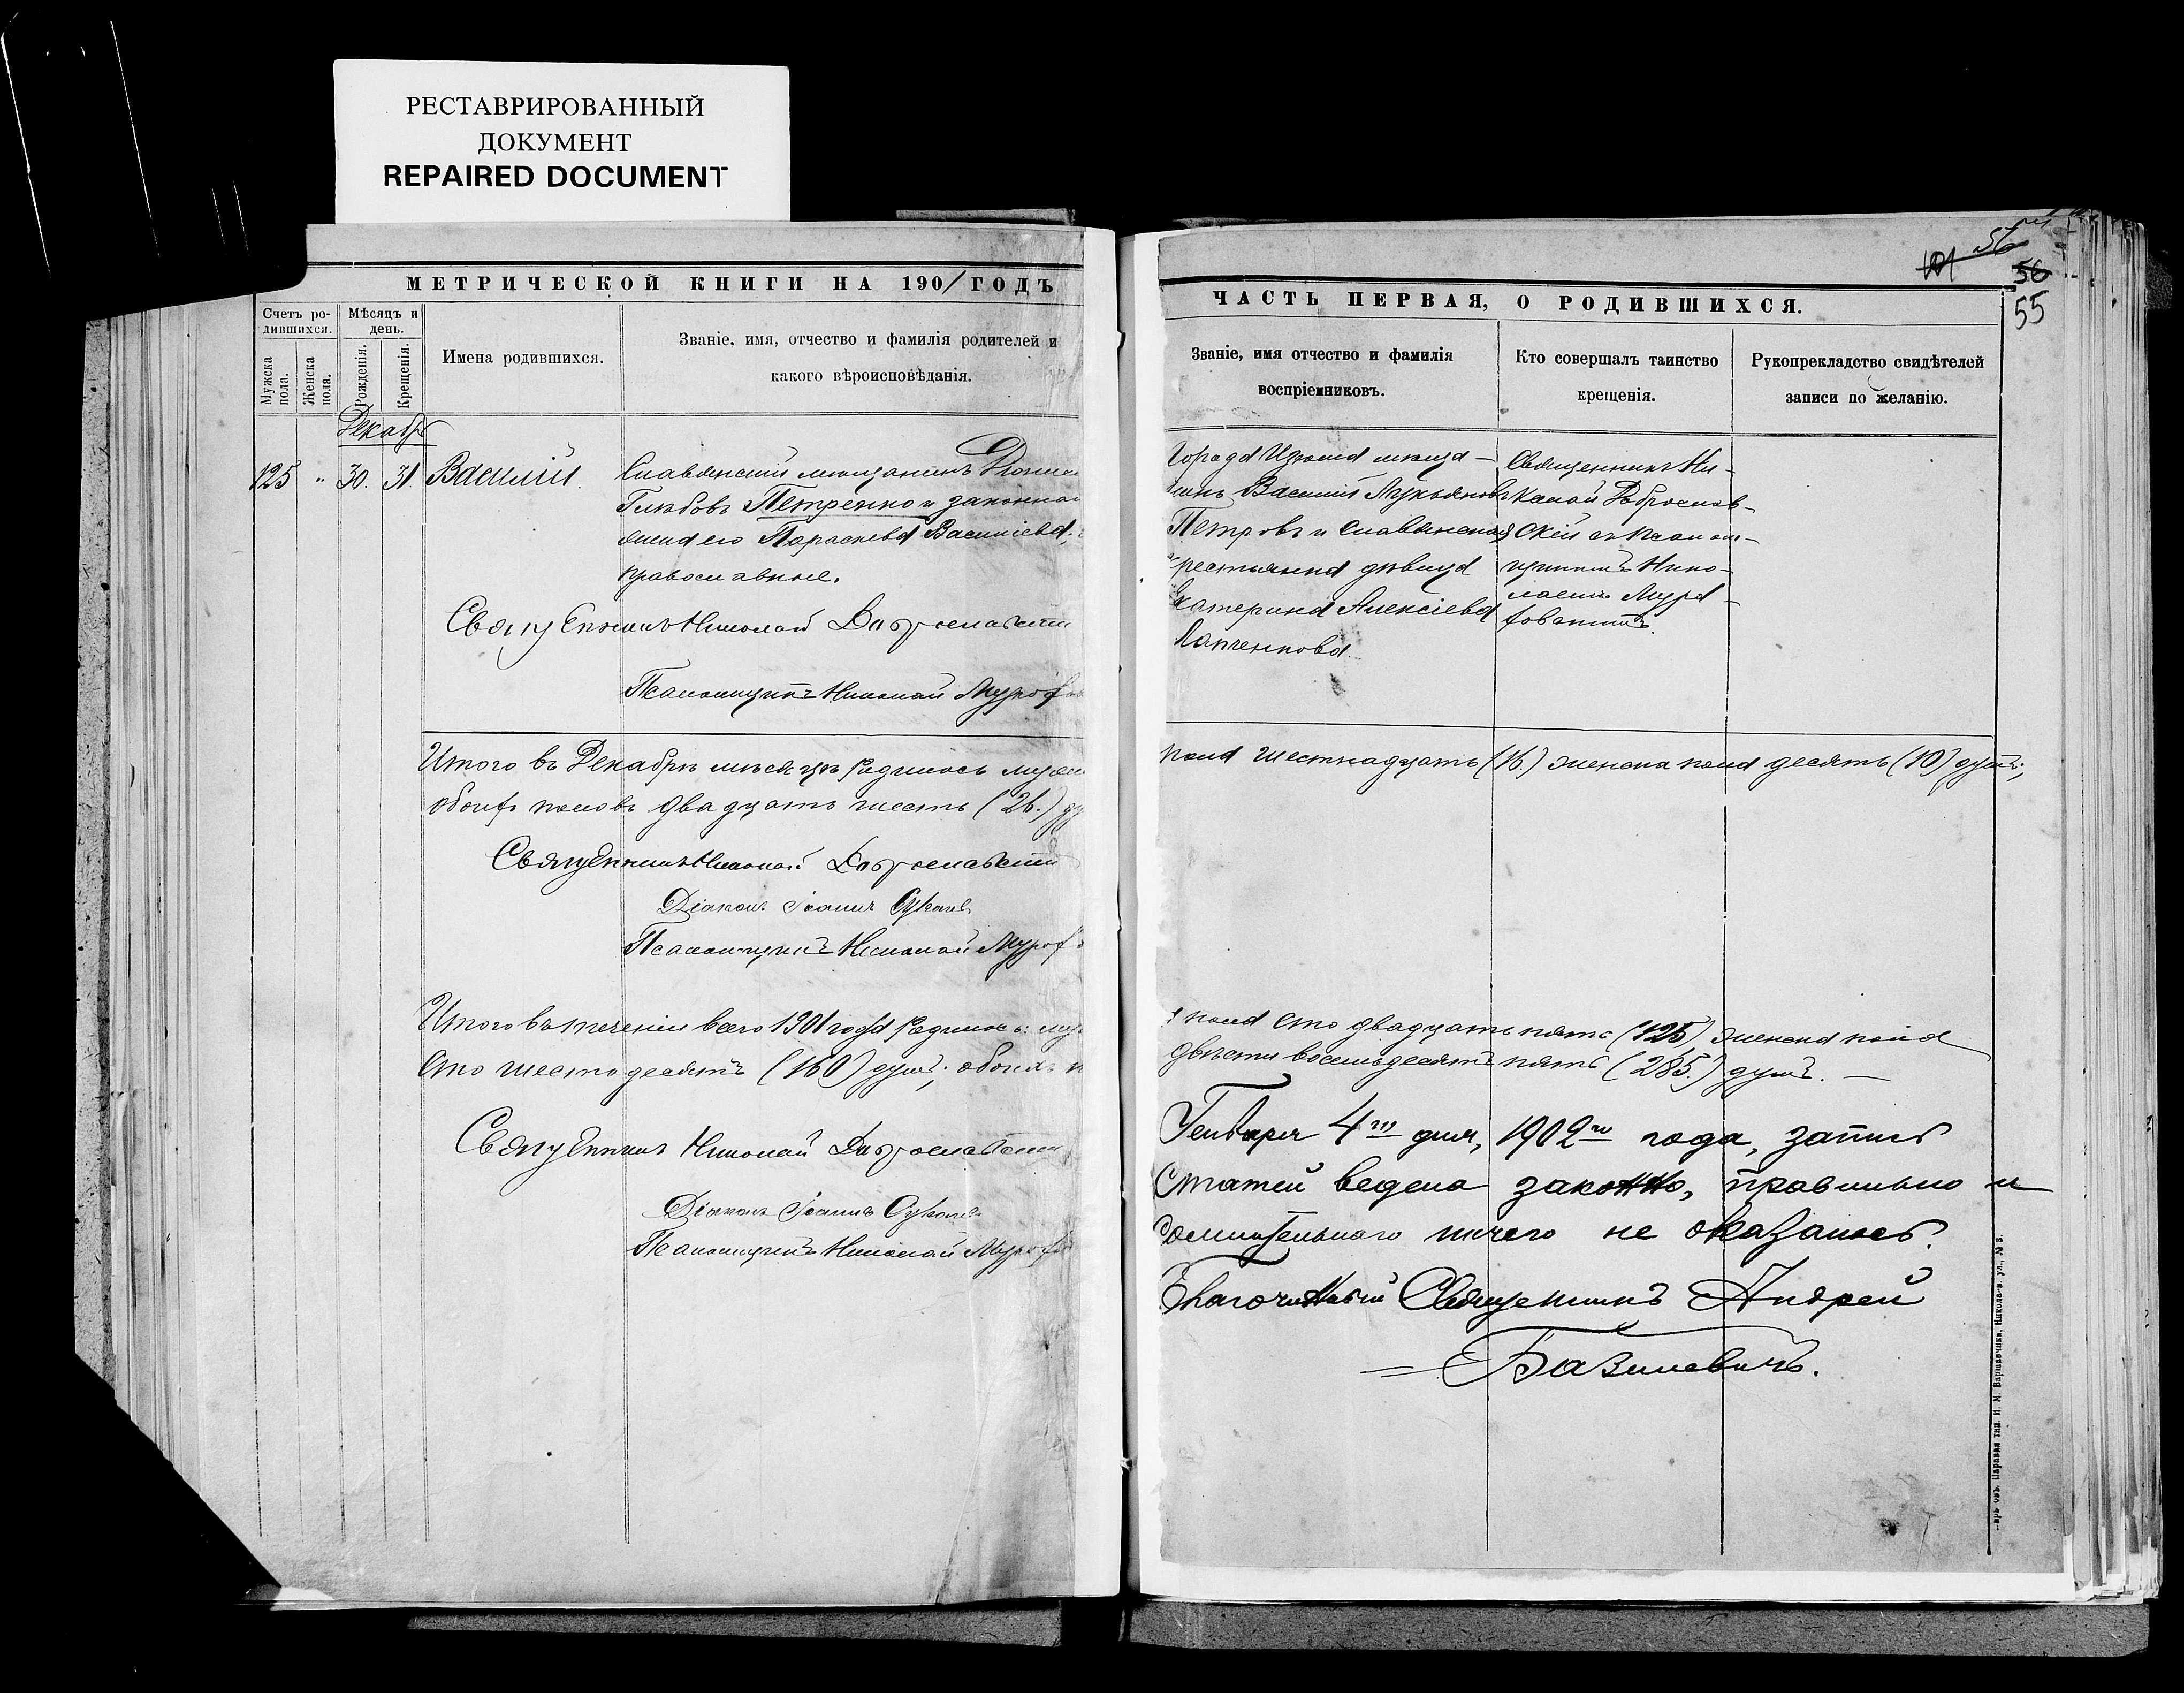 РЕСТАВРИРОВАННЫЙ
ДОКУМЕНТ
REPAIRED DOCUMENT
МЕТРИЧЕСКОЙ КНИГИ НА 1901 ГОДЪ
Счетъ ро-
дившихся.
Мужска
пола.
Женска
пола.
Мѣсяцъ и
день.
Рожденія.
Крещенія.
Имена родившихся.
Званіе, имя, отчество и фамилія родителей и
какого вѣроисповѣданія.
Декабр
125 " 30. 31. Василій.
Славянскій мѣщанинъ
Глѣбовъ Петренко и законная
жена его Параскева Василіева,
православные.
Священникъ Николай Доброславскій
Псаломщикъ Николай
Итого въ Декабрѣ мѣсяцѣ родилось муж
обоихъ половъ двадцать шесть (26.)
Священникъ Николай Доброславскій
Діаконъ Іоаннъ
Псаломщикъ Николай
Итого въ теченіи всего 1901 года родилось: муж
сто шестьдесятъ (160) душъ; обоихъ п
Священникъ Николай Доброславскій
Діаконъ Іоаннъ
Псаломщикъ Николай
101 56
56
55
ЧАСТЬ ПЕРВАЯ, О РОДИВШИХСЯ.
Званіе, имя отчество и фамилія
воспріемниковъ.
Кто совершалъ таинство
крещенія.
Рукоприкладство свидѣтелей
записи по желанію.
Города Изюма мѣща-
нинъ Василій Лукьяновъ
Петровъ и Славянская
крестьянка дѣвица
Екатерина Алексіева
Лапченкова.
Священникъ Ни-
колай Доброслав-
скій съ псалом-
щикомъ Нико-
лаемъ
пола шестнадцать (16.) женска пола десять (10) душъ;
пола сто двадцать пять (125), женска пола
двѣсти восемьдесятъ пять (285.) душъ. —
Генваря 4го дня, 1902го года, запись
статей ведена законно, правильно и
сомнительнаго ничего не оказалось.
Благочинный Священникъ Андрей
Базилевичъ.